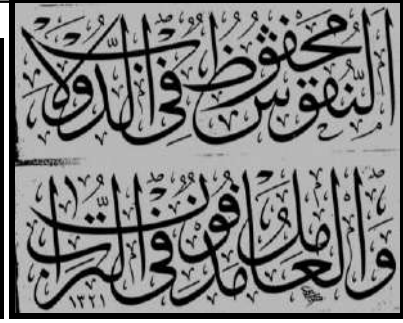 النقوش محفوظ في الدولاب
والعامل مدفون في التراب ١٣٢١